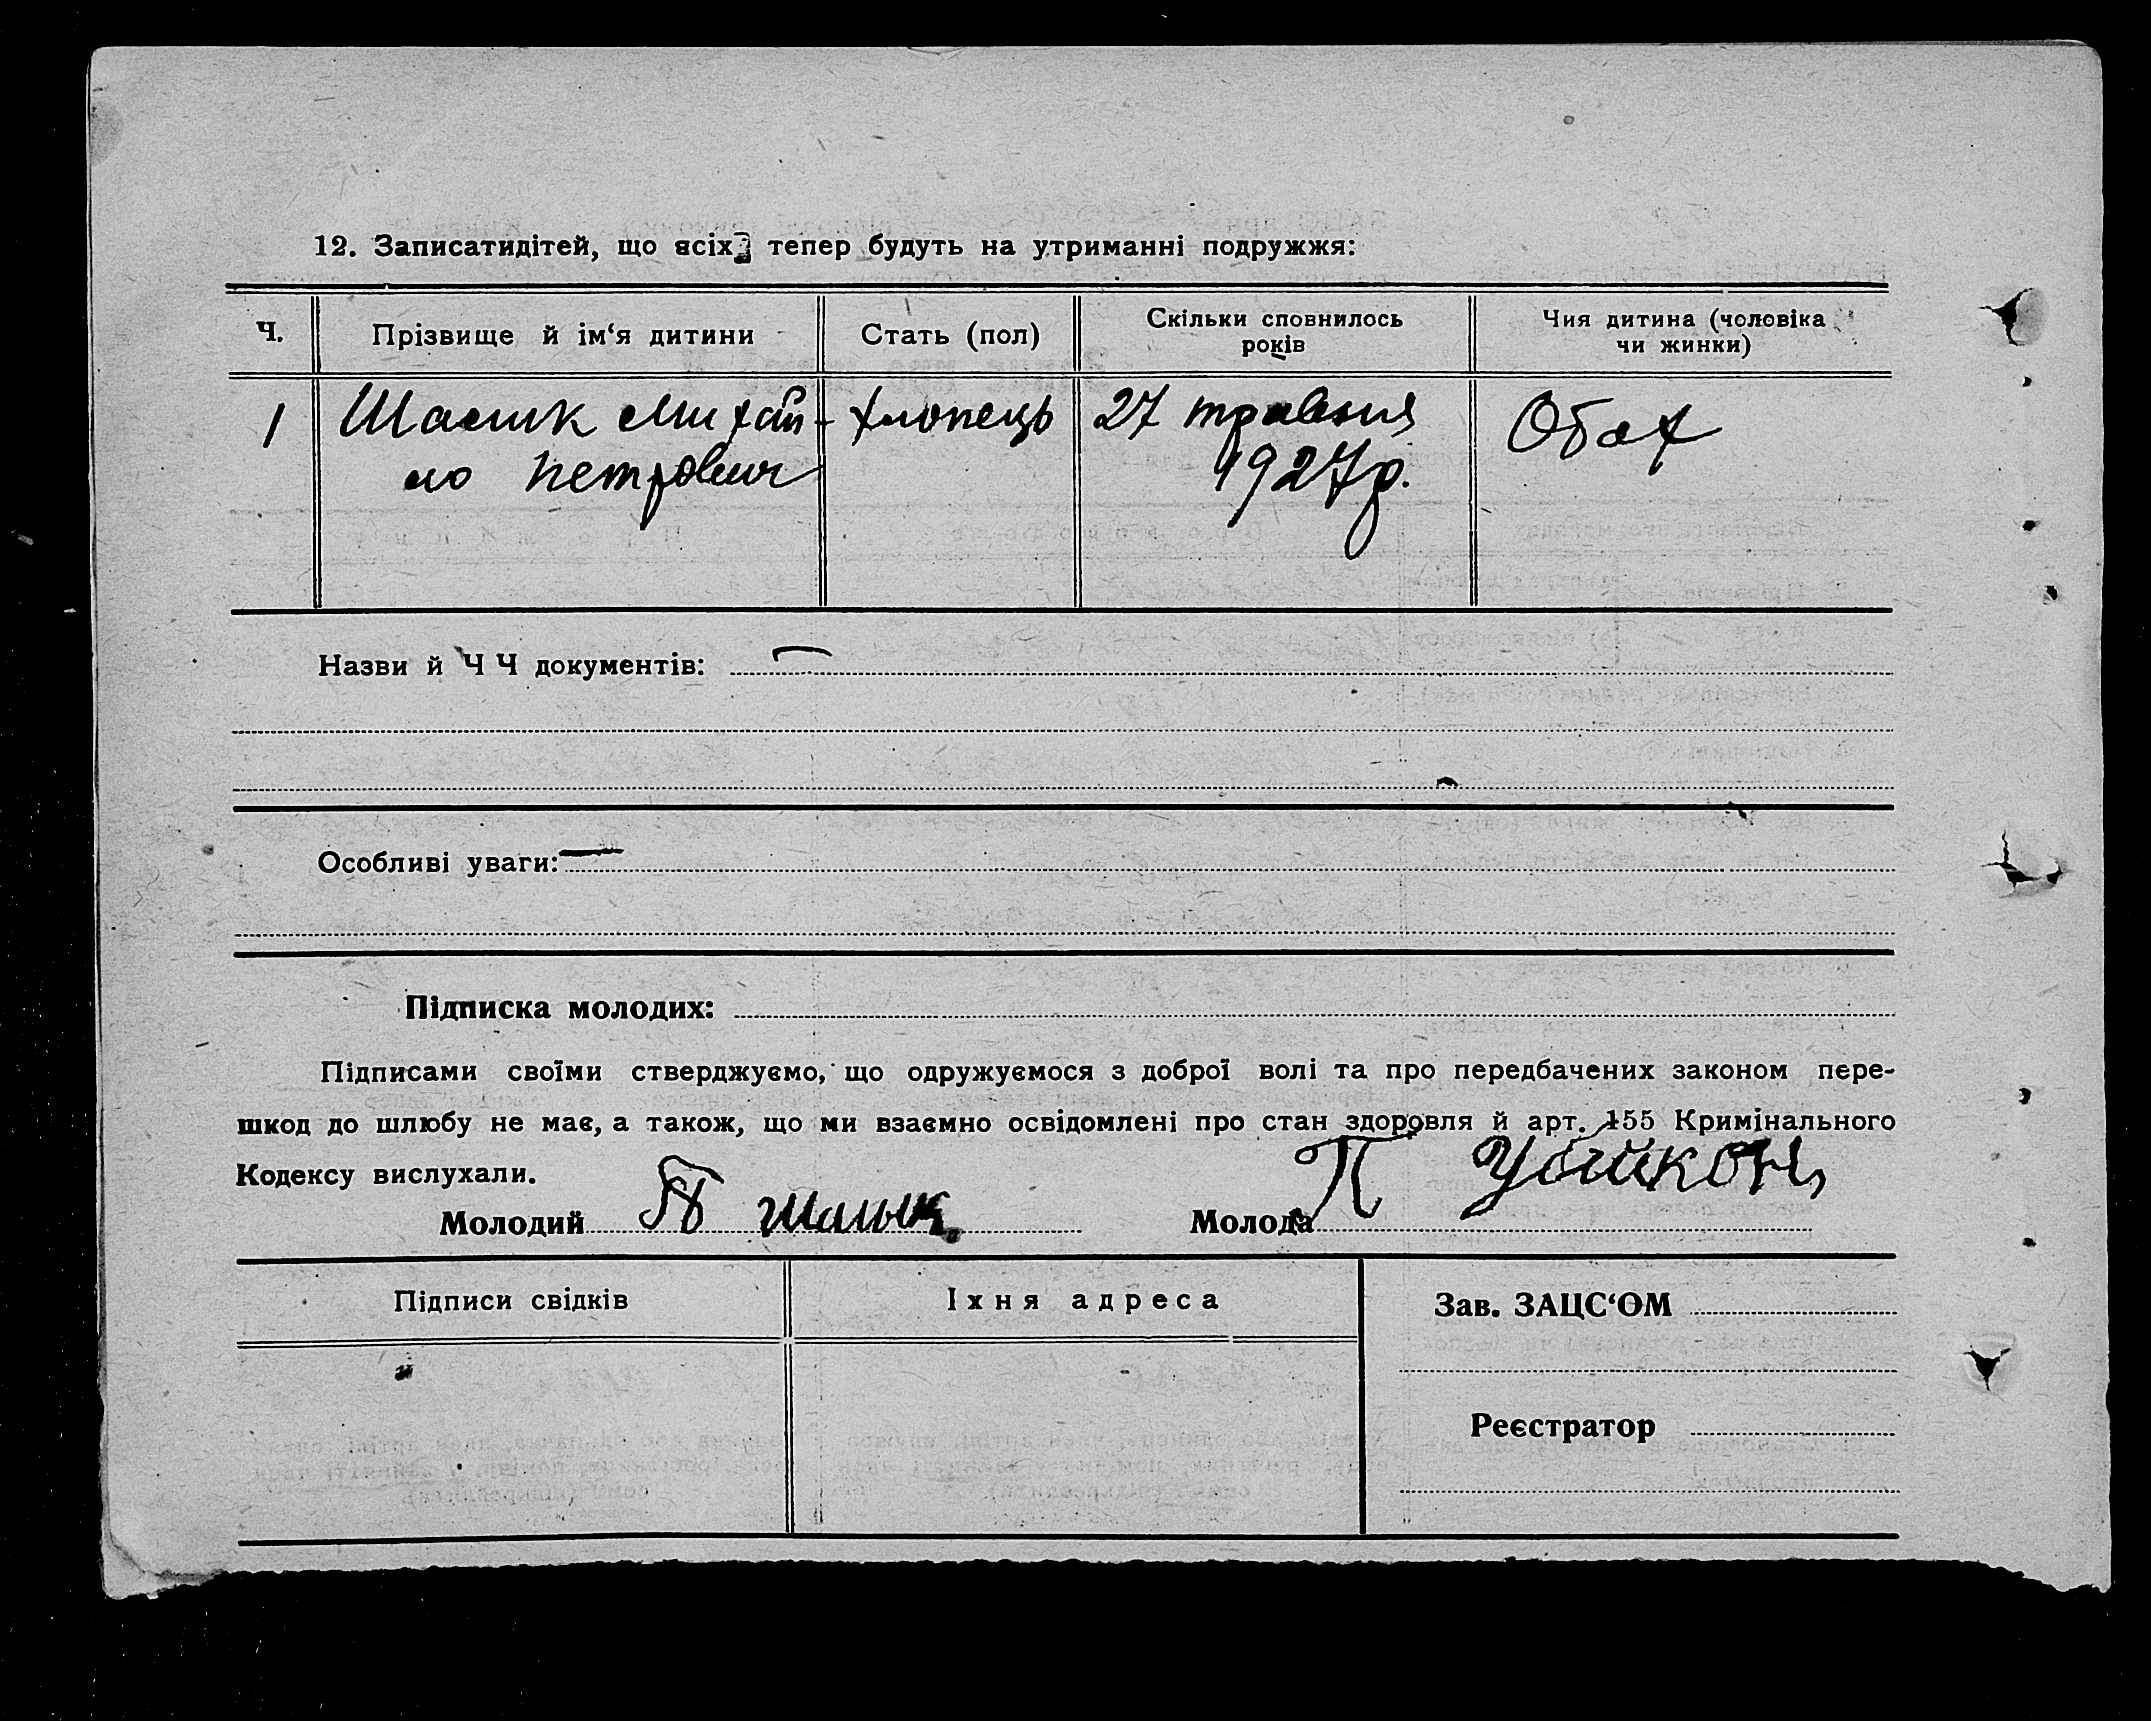 12. Записатидітей, що всіх тепер будуть на утриманні подружжя:
Ч. Прізвище й ім‘я дитини Стать (пол) Скільки сповнилось років Чия дитина (чоловіка чи жинки)
1 Шалик Михай- хлопець 27 травня Обох
ло Петрович 1927р.
Назви й ЧЧ документів: —
Особливі уваги: —
Підписка молодих:
Підписами своїми стверджуємо, що одружуємося з доброї волі та про передбачених законом пере-
шкод до шлюбу не має, а також, що ми взаємно освідомлені про стан здоровля й арт. 155 Кримінального
Кодексу вислухали.
Молодий П Молода П
Підписи свідків Їхня адреса Зав. ЗАЦС‘ОМ
Реєстратор